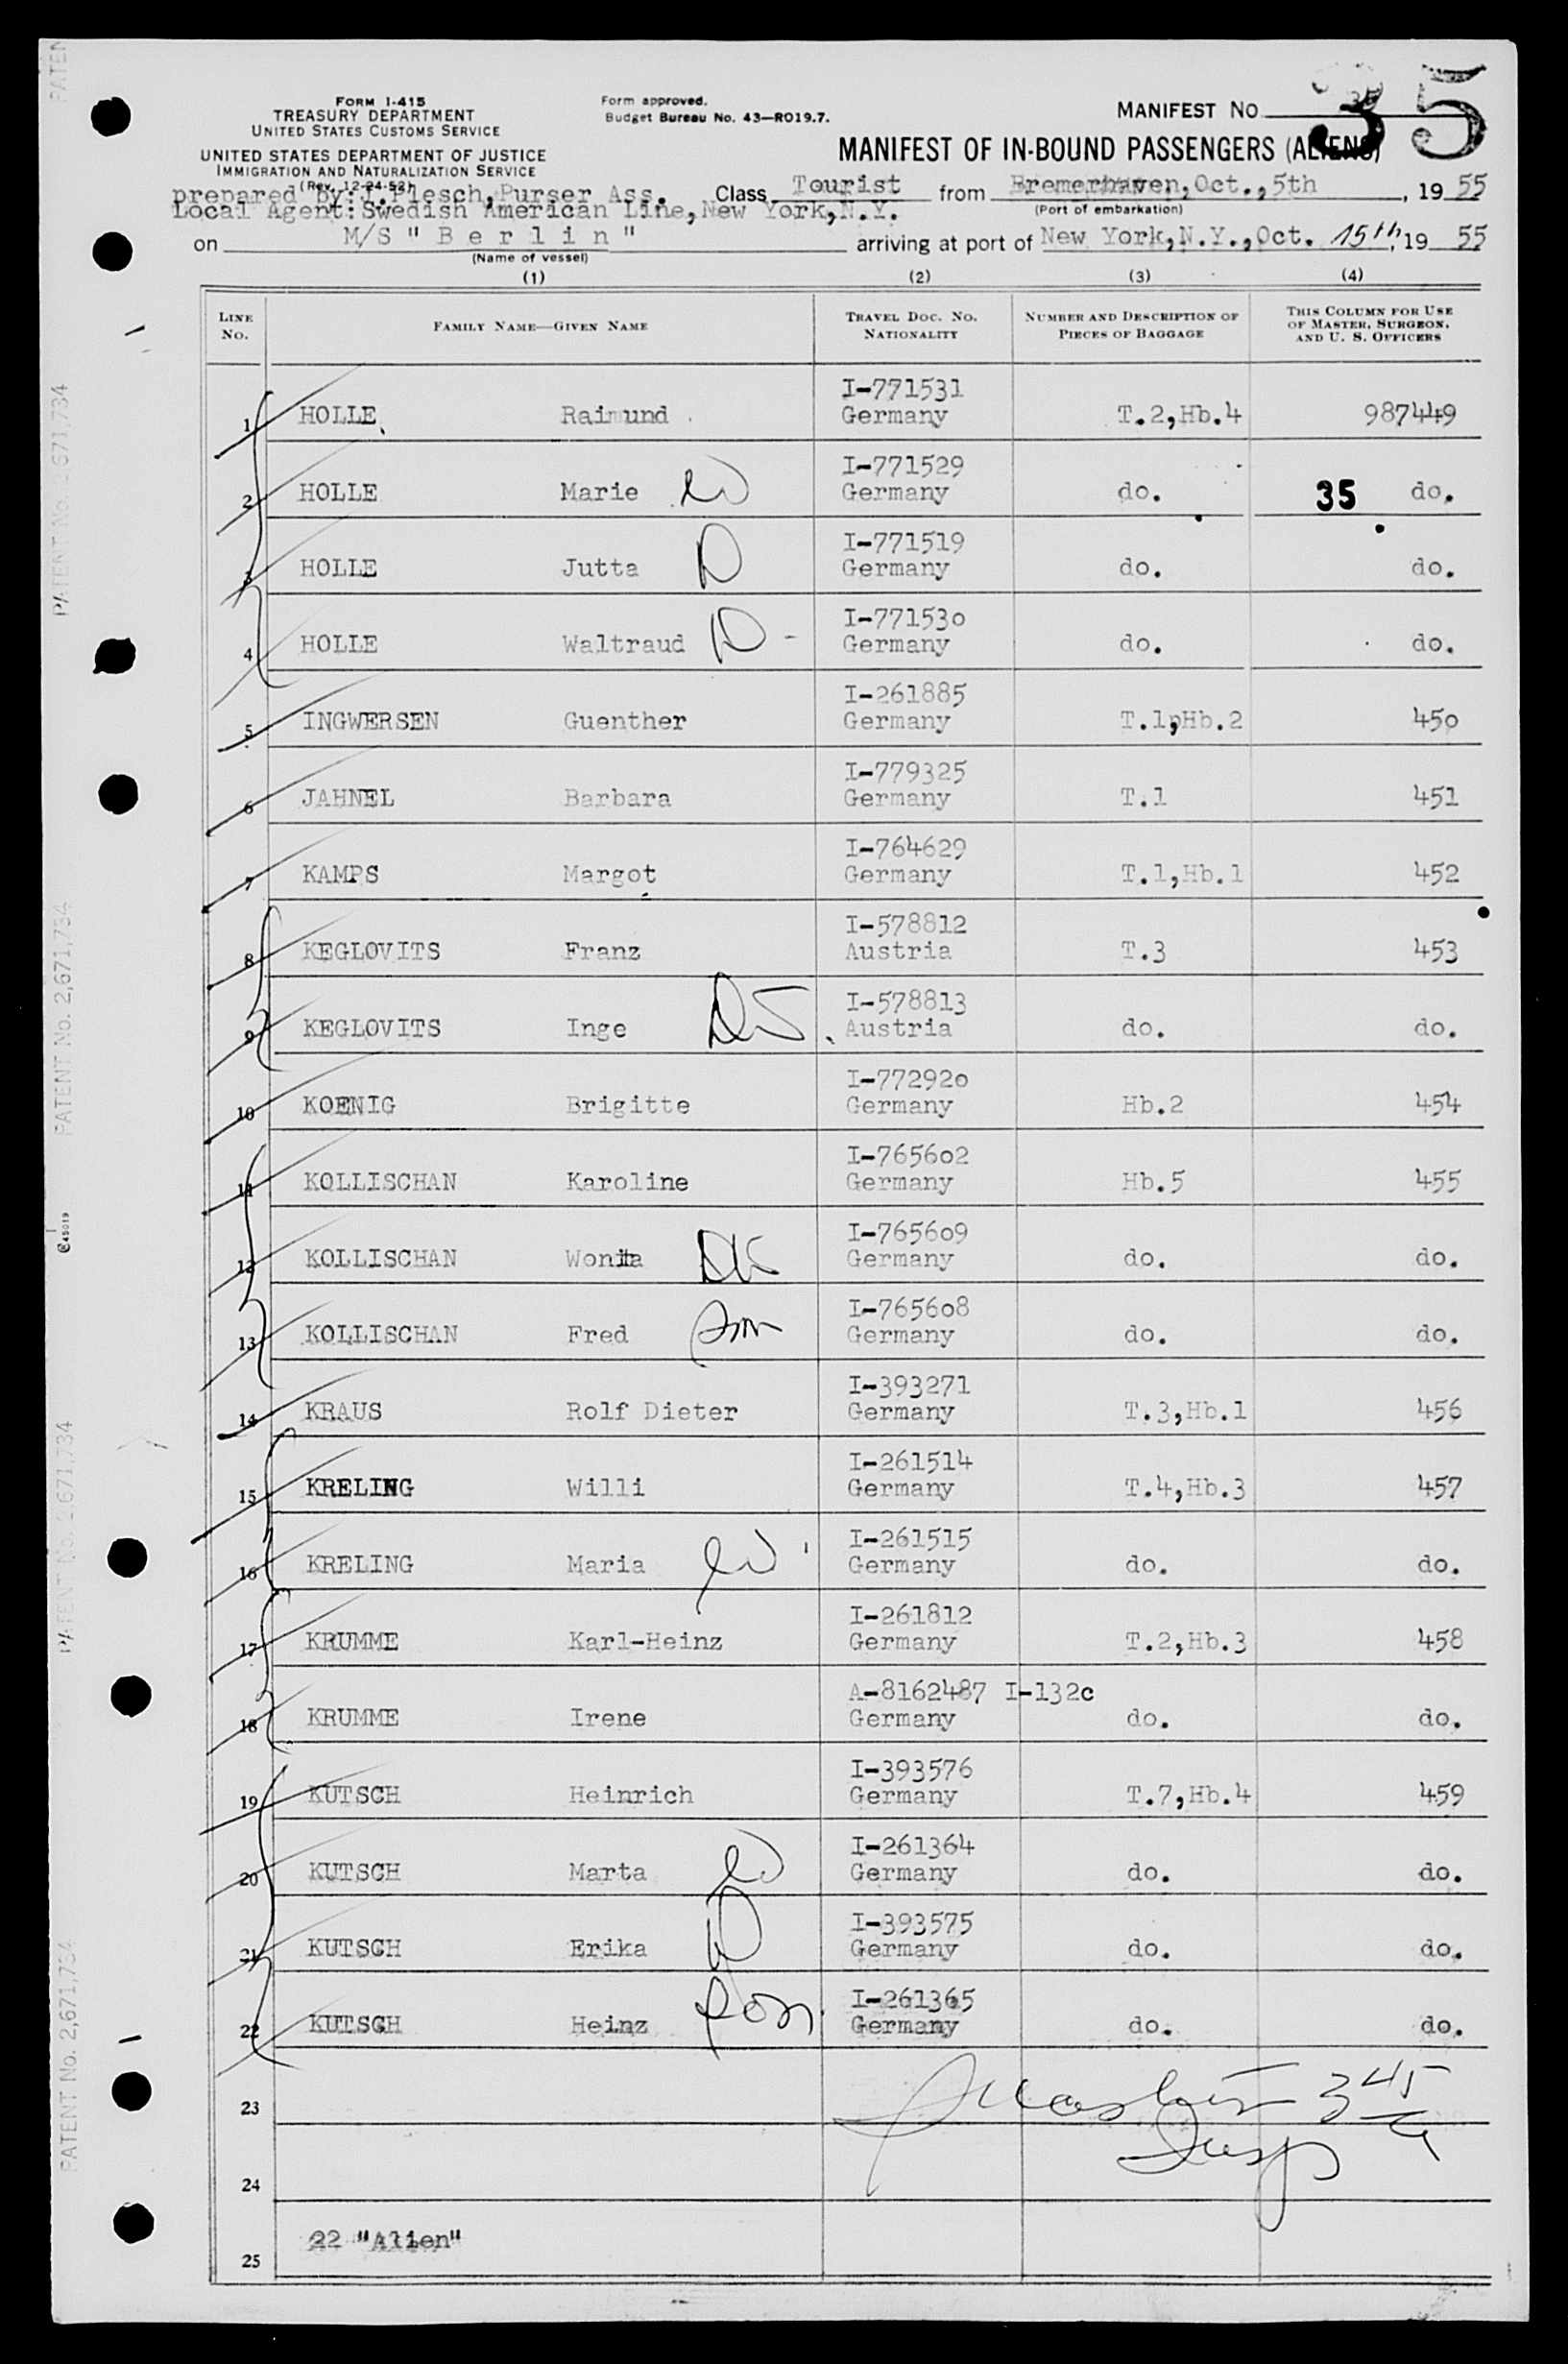 FORM I-415
TREASURY DEPARTMENT
UNITED STATES CUSTOMS SERVICE
UNITED STATES DEPARTMENT OF JUSTICE
IMMIGRATION AND NATURALIZATION SERVICE
(Rev. 12-24-52)
Form approved.
Budget Bureau No. 43—RO19.7.
MANIFEST NO. 35
MANIFEST OF IN-BOUND PASSENGERS (ALIENS)
prepared by: J.Plesch,Purser Ass. Class Tourist from Bremerhaven,Oct.,5th, 19 55
(Port of embarkation)
Local Agent:Swedish American Line,New York,N.Y.
on M/S " B e r l i n " arriving at port of New York,N.Y.,Oct. 15th, 19 55
(Name of vessel)
(1) (2) (3) (4)
LINE NO. FAMILY NAME—GIVEN NAME TRAVEL DOC. NO. NATIONALITY NUMBER AND DESCRIPTION OF PIECES OF BAGGAGE THIS COLUMN FOR USE OF MASTER, SURGEON, AND U. S. OFFICERS
I-771531
1 HOLLE Raimund Germany T.2,Hb.4 987449
I-771529
2 HOLLE Marie Germany do. 35 do.
I-771519
3 HOLLE Jutta Germany do. do.
I-771530
4 HOLLE Waltraud Germany do. do.
I-261885
5 INGWERSEN Guenther Germany T.1,Hb.2 450
I-779325
6 JAHNEL Barbara Germany T.1 451
I-764629
7 KAMPS Margot Germany T.1,Hb.1 452
I-578812
8 KEGLOVITS Franz Austria T.3 453
I-578813
9 KEGLOVITS Inge Austria do. do.
I-772920
10 KOENIG Brigitte Germany Hb.2 454
I-765602
11 KOLLISCHAN Karoline Germany Hb.5 455
I-765609
12 KOLLISCHAN Germany do. do.
I-765608
13 KOLLISCHAN Fred Germany do. do.
I-393271
14 KRAUS Rolf Dieter Germany T.3,Hb.1 456
I-261514
15 KRELING Willi Germany T.4,Hb.3 457
I-261515
16 KRELING Maria Germany do. do.
I-261812
17 KRUMME Karl-Heinz Germany T.2,Hb.3 458
A-8162487 I-132c
18 KRUMME Irene Germany do. do.
I-393576
19 KUTSCH Heinrich Germany T.7,Hb.4 459
I-261364
20 KUTSCH Marta Germany do. do.
I-393575
21 KUTSCH Erika Germany do. do.
I-261365
22 KUTSCH Heinz Germany do. do.
23
24
25 22 "Alien"
PATENT No. 2,671,734
PATENT No. 2,671,734
PATENT No. 2,671,734
PATENT No. 2,671,734